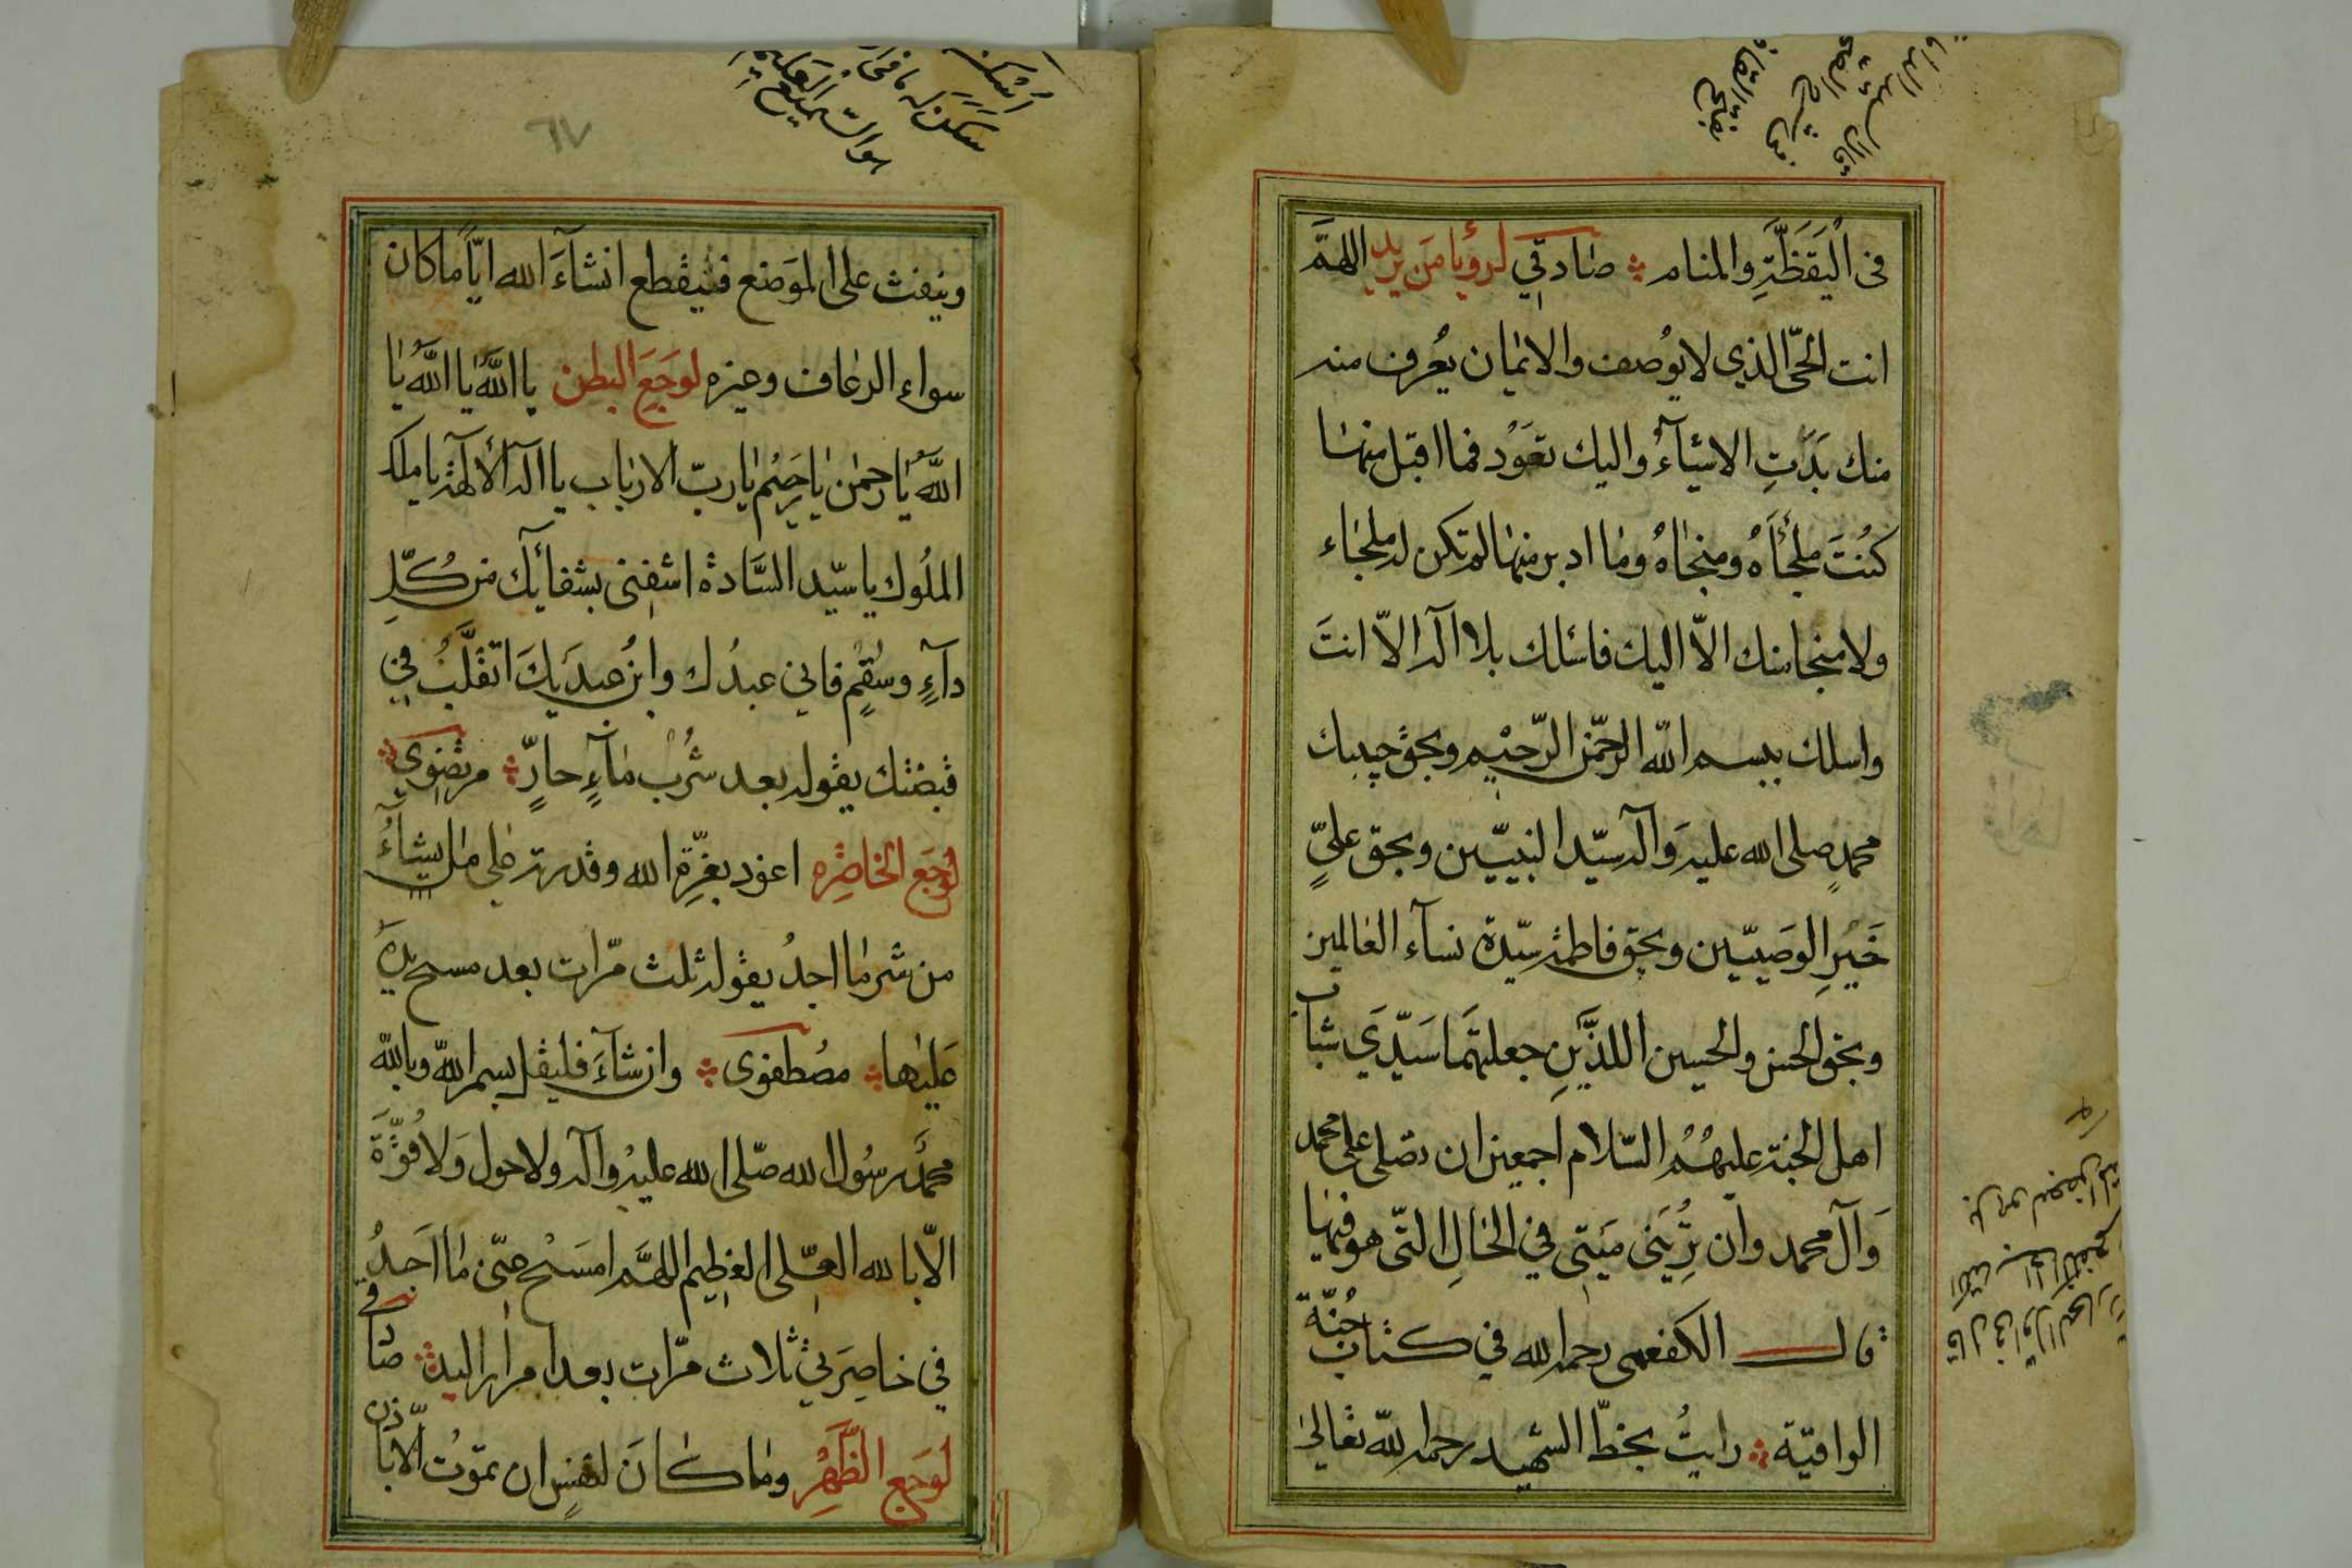 فى اليَقَظَةِ والمنام صٰادقي لرؤيا مَن يريد اللهمَّ
انت الحىّ الذي لا يوُصف والايمٰان يُعرف منه
منك بَدَتِ الاشيٰآءُ واليك تعَوُد فما اقبل منهٰا
كنُتَ ملجٰأَهُ ومنجٰاهُ ومٰا ادبر منهٰا لم تكن له ملجٰاء
ولا منجا منك الاّ اليك فاسٔلك بلا اله الاّ انتَ
واسلك ببسم اللّه الرحمّن الرّحيْم وبحق حبيبك
محمدٍ صلى الله عليه وَآله سيّد النبيّين وبحق علىٍّ
خَيْرِ الوصَييّن وبحق فاطمة سيّدة نسآء العٰالمين
وبحق الحسن والحسين اللذَيْنِ جعلتهَما سَيّدَي شبٰاب
اهل الجنة عليهُمُ السّلام اجمعين ان تصلى على محمد
وَآل محمد وان تُرِيَنى مَيّتى في الحٰالِ التّى هو فيهٰا
قال الكفعمى رحمه الله في كتاب جُنّة
الواقية رايتُ بخطّ الشهيد رحمه اللّه تعٰالىٰ
٦٧
وينفث على الموَضع فينقطع انشآءَ الله ايّاً ما كان
سواء الرعٰاف وغيره لوجَعَ البطن يا اللهُ يا اللهُ يٰا
اللهُ يٰا رحمٰن يٰا رحَيٖم يٰا ربّ الاربٰاب يا اله الآلهة يا ملك
الملُوك يا سيّد السَّادة اشفِنى بشفائك من كُلِّ
دآءٍ وسُقمٍ فاني عبدُك وابنُ عبدَيكَ اتقلَّبُ في
قبضتك يقوله بعد شُرْب مٰآءٍ حارٍّ مرتضوي
لوجَع الخاصِره اعوذ بعزّةِ الله وقدرته على مٰا يشٰآءُ
من شر مٰا اجدُ يقوله ثلث مّرات بعد مسح يدهِ
عَليْهٰا مصُطفوى وان شآءَ فليقل بسم اللّه وباللّه
محمَّد رسُول الله صّلى الله عليْه وآله ولا حول وَلا قُوَّةَ
الاّ بالله العلّى العظِيم اللهمَّ امسَحْ عنّى مٰا اجَدُ
في خاصِرَتي ثلاث مّرات بعد امرار اليد صٰادقي
لوَجَع الظَّهَرِ ومٰا كٰانَ لنفسٍ ان تموُت الاّ باذن